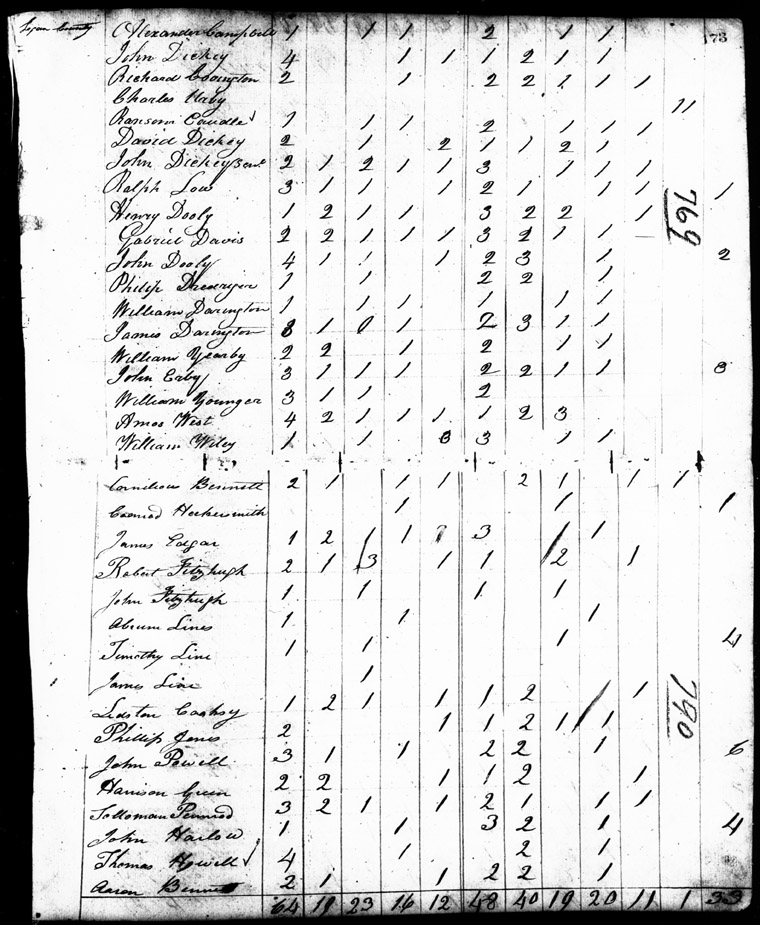 Logan County 173
Alexander Campbell 1 1 1 2 1 1
John Dickey 4 1 1 1 2 1 1
Richard Covington 2 1 2 2 1 1 1
Charles 11
Ransom Caudle 1 1 1 2 1 1 1
David Dickey 2 1 2 1 1 2 1
John Dickey Senr 2 1 2 1 1 3 1 1 1
Ralph Low 3 1 1 1 2 1 1 1 1 1
769
Henry Dooly 1 2 1 1 3 2 2 1
Gabriel Davis 2 2 1 1 1 3 2 1 1 —
John Dooly 4 1 1 1 2 3 1 2
Philip 1 1 2 2 1
William Darington 1 1 1 1 1 1
James Darington 8 1 0 1 2 3 1 1
William Yearby 2 2 1 2 1 1
John Erby 3 1 1 1 2 2 1 1 3
William Younger 3 1 1 2
Amos West 4 2 1 1 1 1 2 3
William Wiley 1 1 3 3 1 1
Cornilious Bennett 2 1 1 1 2 1 1 1
Conrod Heckersmith 1 1 1
James Edgar 1 2 1 1 3 1 1
Robert Fitzhugh 2 1 3 1 1 2 1
John Fitzhugh 1 1 1 1
Abrum Lines 1 1 1
Timothy Line 1 1 1 4
James Line 1
790
Ledston Cooksy 1 2 1 1 1 2 1
Phillip Jones 2 1 1 2 1 1
John Powell 3 1 1 2 2 1 6
Harrison Green 2 2 1 1 2 1
Solloman Penrod 3 2 1 1 2 1 1 1
John Harlow 1 1 3 2 1 4
Thomas Howell 4 1 2 1
Aaron Bennet 2 1 1 2 2 1
64 19 23 16 12 48 40 19 20 11 1 33